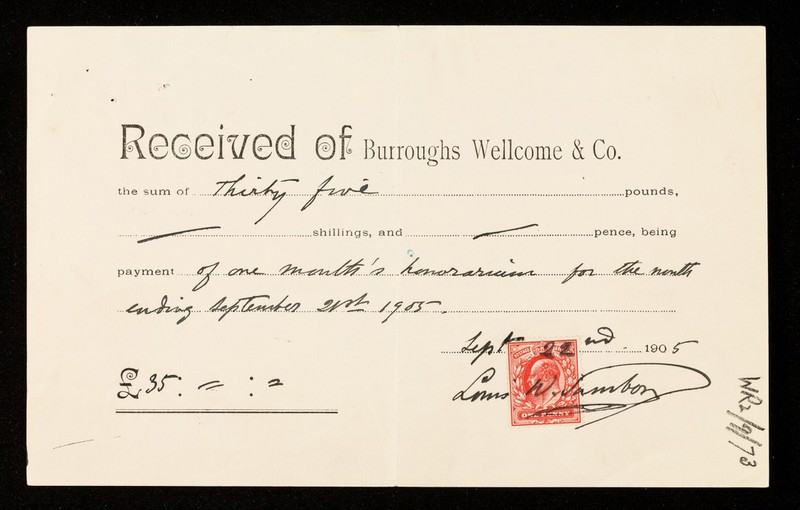 Received of Burroughs Wellcome & Co.
the sum of Thirty five pounds,
shillings, and pence, being
payment of one month's honorarium for the month
ending September 21st 1905.
Sept 22nd 1905
£35 : = : =
Louis W. Sambon
ONE PENNY
WR2/9/73